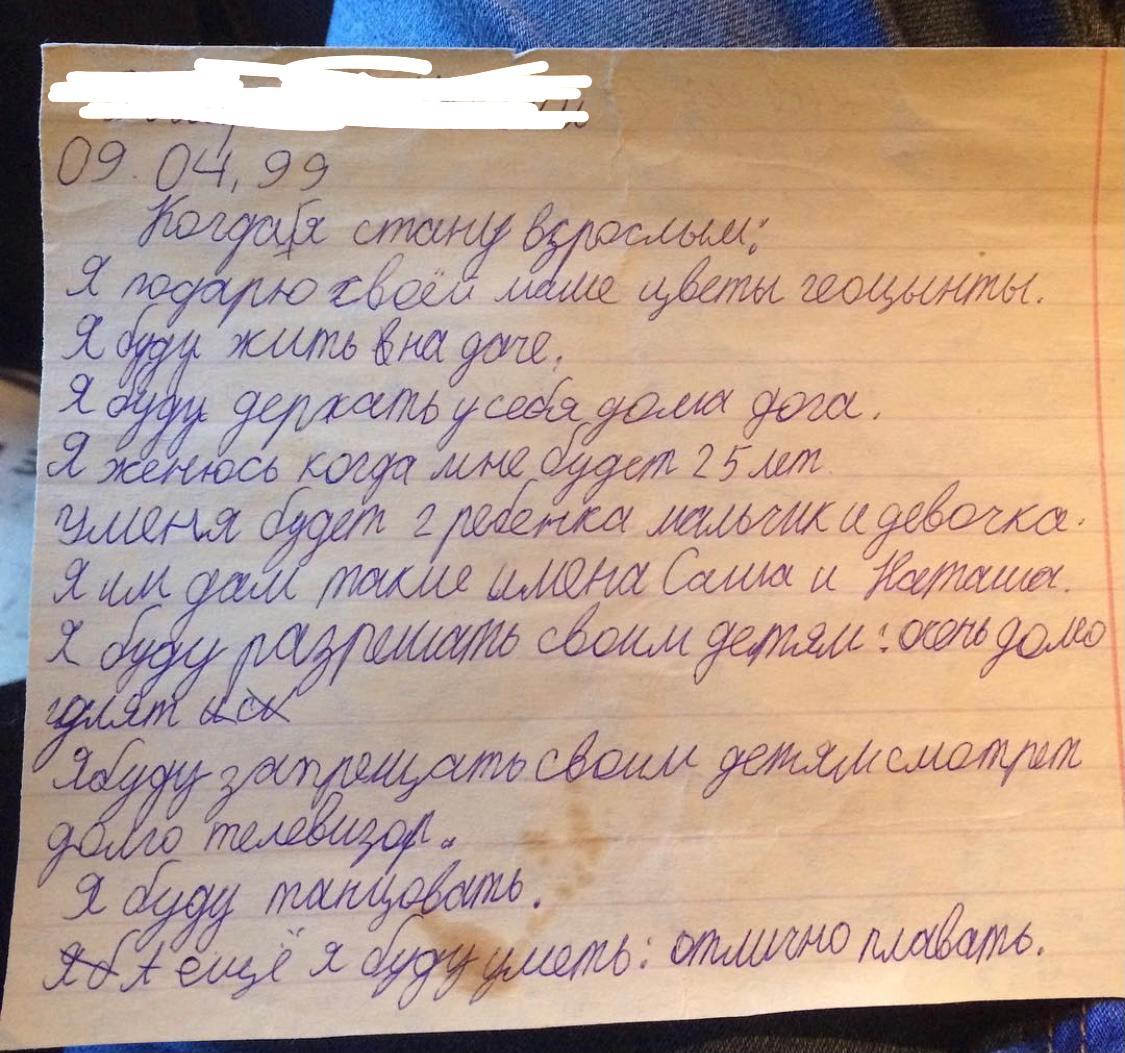 09.04,99
Когда я стану взрослым:
Я подарю своей маме цветы геоцынты.
Я буду жить на даче.
Я буду держать у себя дома дога.
Я женюсь когда мне будет 25 лет
У меня будет 2 ребенка мальчик и девочка.
Я им дам такие имена Саша и Наташа.
Я буду разрешать своим детям: очень долго
гдлят
Я буду запрещать своим детям смотрет
долго телевизор.
Я буду танцовать.
А ещё я буду уметь: отлично плавать.